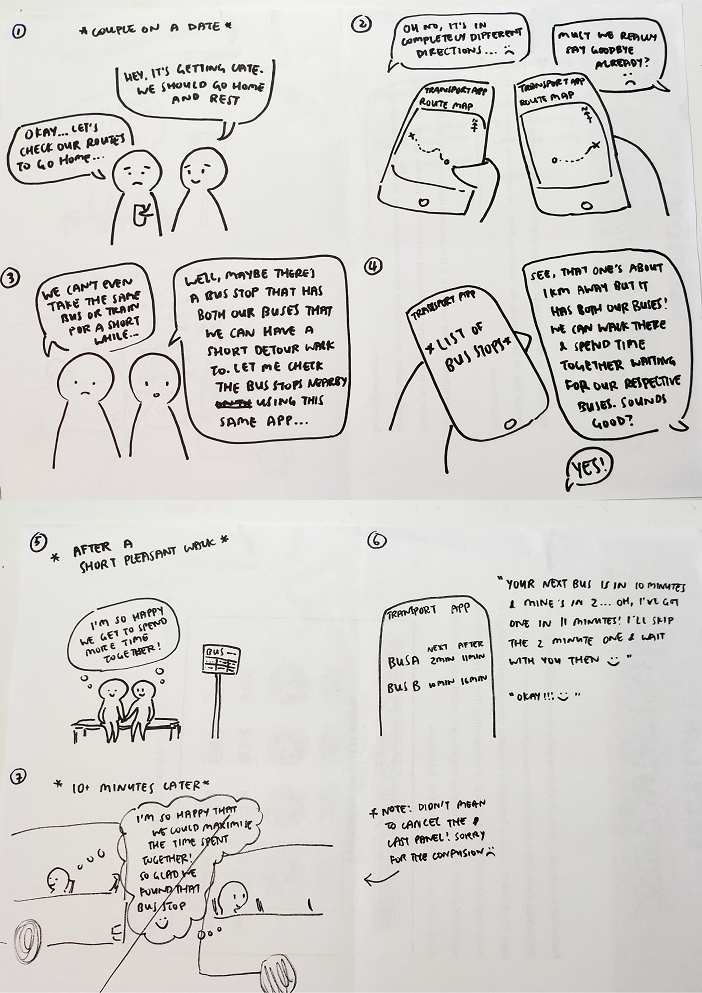 ①
*COUPLE ON A DATE*
HEY, IT'S GETTING LATE.
WE SHOULD GO HOME
AND REST
OKAY... LET'S
CHECK OUR ROUTES
TO GO HOME...
②
OH NO, IT'S IN
COMPLETELY DIFFERENT
DIRECTIONS... :(
MUST WE REALLY
SAY GOODBYE
ALREADY?
:(
TRANSPORT APP
ROUTE MAP
TRANSPORT APP
ROUTE MAP
③
WE CAN'T EVEN
TAKE THE SAME
BUS OR TRAIN
FOR A SHORT
WHILE...
WELL, MAYBE THERE'S
A BUS STOP THAT HAS
BOTH OUR BUSES THAT
WE CAN HAVE A
SHORT DETOUR WALK
TO. LET ME CHECK
THE BUS STOPS NEARBY
USING THIS
SAME APP...
④
TRANSPORT APP
*LIST OF
BUS STOPS*
SEE, THAT ONE'S ABOUT
1KM AWAY BUT IT
HAS BOTH OUR BUSES!
WE CAN WALK THERE
& SPEND TIME
TOGETHER WAITING
FOR OUR RESPECTIVE
BUSES. SOUNDS
GOOD?
YES!
⑤
* AFTER A
SHORT PLEASANT WALK *
I'M SO HAPPY
WE GET TO SPEND
MORE TIME
TOGETHER!
BUS
⑥
TRANSPORT APP
NEXT AFTER
BUS A 2MIN 11MIN
BUS B 10MIN 16MIN
"YOUR NEXT BUS IS IN 10 MINUTES
& MINE'S IN 2... OH, I'VE GOT
ONE IN 11 MINUTES! I'LL SKIP
THE 2 MINUTE ONE & WAIT
WITH YOU THEN :) "
"OKAY!!! :) "
⑦
* 10+ MINUTES LATER*
I'M SO HAPPY THAT
WE COULD MAXIMISE
THE TIME SPENT
TOGETHER!
SO GLAD WE
FOUND THAT
BUS STOP
:)
* NOTE: DIDN'T MEAN
TO CANCEL THE
LAST PANEL! SORRY
FOR THE CONFUSION :(